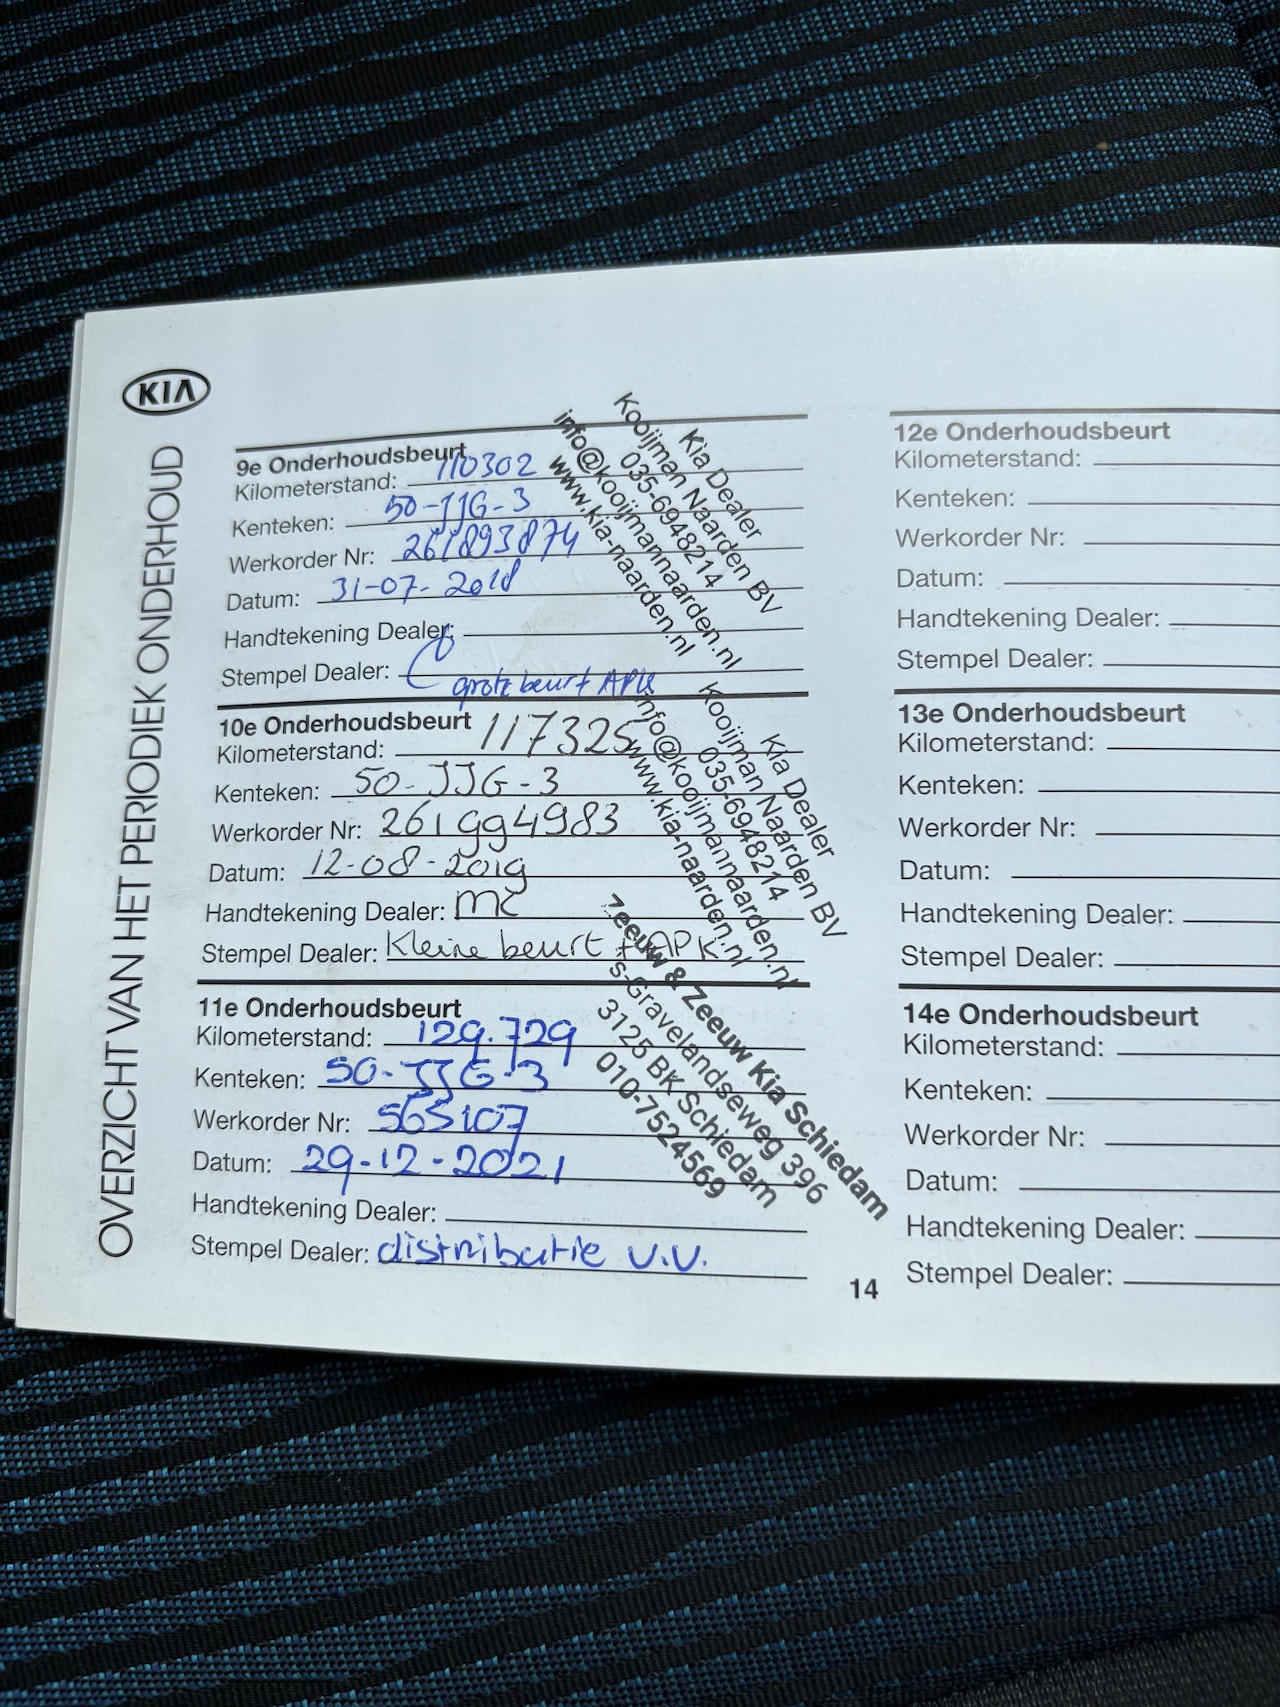 KIA
OVERZICHT VAN HET PERIODIEK ONDERHOUD
9e Onderhoudsbeurt
Kilometerstand: 110302
Kenteken: 50-JJG-3
Werkorder Nr: 261893874
Datum: 31-07-2018
Handtekening Dealer:
Stempel Dealer: grote beurt APK
Kia Dealer
Kooijman Naarden BV
035-6948214
info@kooijmannaarden.nl
www.kia-naarden.nl
10e Onderhoudsbeurt
Kilometerstand: 117325
Kenteken: 50-JJG-3
Werkorder Nr: 261994983
Datum: 12-08-2019
Handtekening Dealer:
Stempel Dealer: Kleine beurt + APK
Kia Dealer
Kooijman Naarden BV
035-6948214
info@kooijmannaarden.nl
www.kia-naarden.nl
11e Onderhoudsbeurt
Kilometerstand: 129.729
Kenteken: 50-JJG-3
Werkorder Nr: 565107
Datum: 29-12-2021
Handtekening Dealer:
Stempel Dealer: distributie v.v.
Zeeuw & Zeeuw Kia Schiedam
's-Gravelandseweg 396
3125 BK Schiedam
010-7524569
14
12e Onderhoudsbeurt
Kilometerstand:
Kenteken:
Werkorder Nr:
Datum:
Handtekening Dealer:
Stempel Dealer:
13e Onderhoudsbeurt
Kilometerstand:
Kenteken:
Werkorder Nr:
Datum:
Handtekening Dealer:
Stempel Dealer:
14e Onderhoudsbeurt
Kilometerstand:
Kenteken:
Werkorder Nr:
Datum:
Handtekening Dealer:
Stempel Dealer: